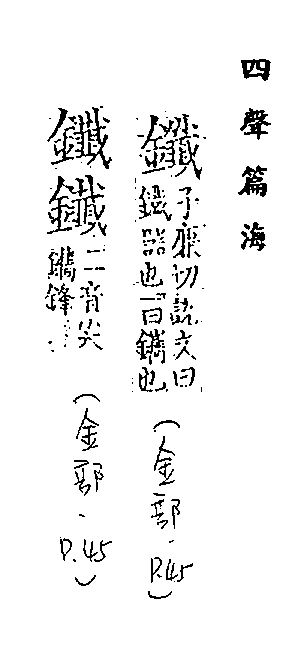 四聲篇海
鑯
子廉切說文曰
鐵器也一曰鐫也
(金部.P.45)
二音尖
鐫鋒
(金部.P.45)